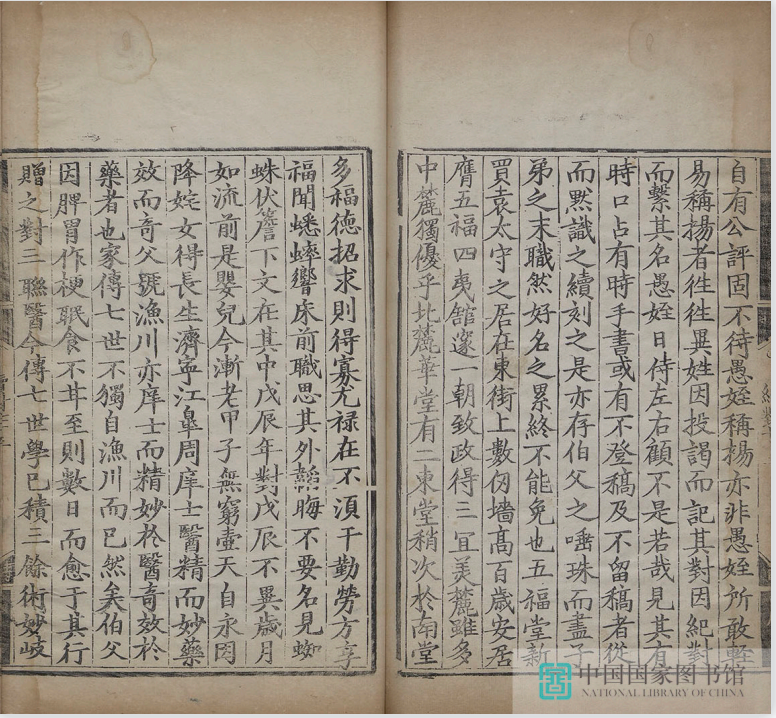 自有公評固不待愚姪稱揚亦非愚姪所敢輕
易稱揚者徃徃異姓因投謁而記其對因紀對
而繋其名愚姪日侍左右顧不是若哉見其有
時口占有時手書或有不登稿及不留稿者從
而黙識之續刻之是亦存伯父之唾珠而盡子
弟之末職然好名之累終不能免也五福堂新
買袁太守之居在東街上數仭墻髙百歳安居
膺五福四夷舘邃一朝致政得三冝美麓雖多
中麓獨優乎北麓華堂有二東堂稍次於南堂
多福德招求則得寡尤禄在不湏干勤勞方享
福聞蟋蟀響床前職思其外韜晦不要名見蜘
蛛伏簷下文在其中戊辰年對戊辰不異歳月
如流前是嬰兒今漸老甲子無窮壷天自永因
降姹女得長生濟寧江皐周庠士醫精而妙藥
效而竒父號漁川亦庠士而精妙於醫竒效於
藥者也家傳七世不獨自漁川而已然矣伯父
因脾胃作梗眂食不甘至則數日而愈于其行
贈之對三聯醫今傳七世學已積三餘術妙岐
中国国家图书馆
NATIONAL LIBRARY OF CHINA